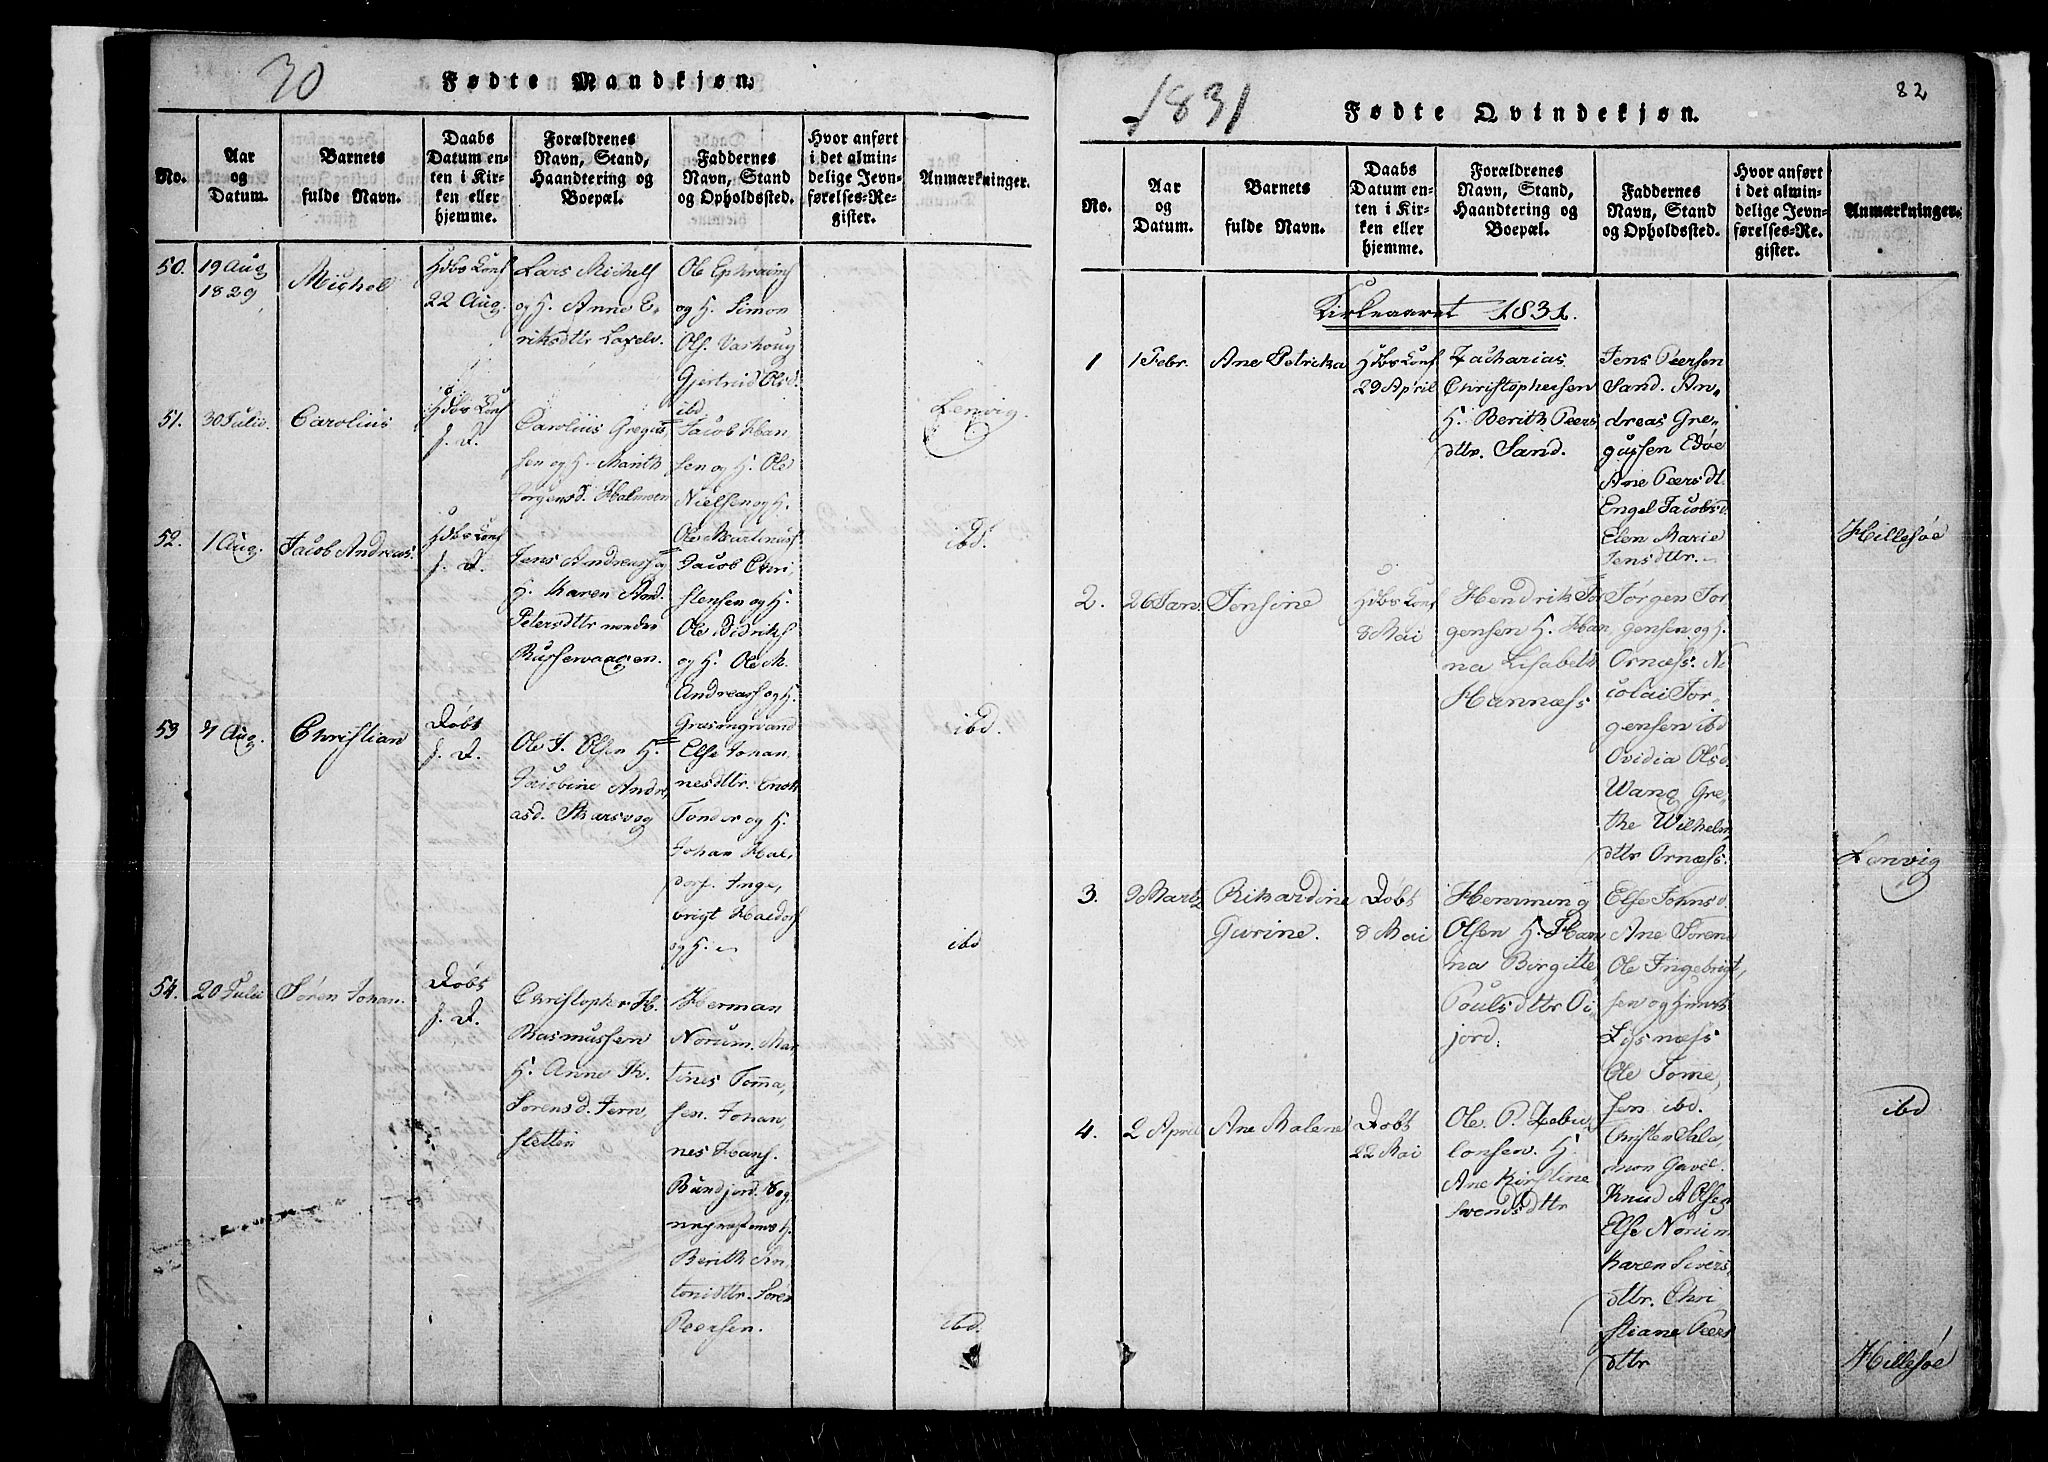 30
Fødte Mandkjøn.
No.
Aar
og
Datum.
Barnets
fulde Navn.
Daabs
Datum en-
ten i Kir-
ken eller
hjemme.
Forældrenes
Navn, Stand,
Haandtering og
Boepæl.
Faddernes
Navn, Stand
og Opholdssted.
Hvor anført
i det almin-
delige Jevn-
førelses-Re-
gister.
Anmærkninger.
50.
19 Aug
1829
Michel
Hdbs Conf
22 Aug.
Lars Michels
og H. Anne E-
riksdtr Laxelv.
Ole Ephraims
og H. Simon
Ols. Vaskoug
Gjertrud Olsd.
ibd
Lenvig.
51.
30 Julii.
Carolius
Hdbs Conf
s. D.
Carolius Gregus
sen og H. Marith
Jorgensd. Kalmoen
Jacob Han
sen og H. Ole
Nielsen og H.
Ole Martinuss
ibd.
52.
1 Aug.
Jacob Andreas.
Hdbs Conf
s. D.
Jens Andreass og
H. Karen And.
Petersdttr nordre
Russevaagen.
Jacob Chri,
stensen og H.
Ole Didriks
og H. Ole M.
Andreass og H.
ibd.
53
4 Aug.
Christian
Døbt
s. D.
Ole J. Olsen H.
Jacobine Andr,
asd. Skarsvog
Else Johan,
nesdttr. Enok
Tønder og H.
Johan Hal,
dors. Inge,
brigt Haldors
og H.
ibd
54.
20 Julii
Søren Johan.
Døbt
s. D.
Christopher H.
Rasmussen
H. Anne K.
Sorensd. Jern,
stetten
Herman
Norum. Mar
tines Tomma,
sen. Johan
nes Hans.
Bundjord.
Berith An
tonidttr. Søren
Peersen.
ibd.
1831
82
Fødte Qvindekjøn.
No.
Aar
og
Datum.
Barnets
fulde Navn.
Daabs
Datum en-
ten i Kir-
ken eller
hjemme.
Forældrenes
Navn, Stand,
Haandtering og
Boepæl.
Faddernes
Navn, Stand
og Opholdssted.
Hvor anført
i det almin-
delige Jevn-
førelses-Re-
gister.
Anmærkninger.
Kirkeaaret 1831.
1
1 Febr.
Ane Petrika
Hdbs Conf
29 April
Zacharias
Christophersen
H. Berith Peers
dttr. Sand.
Jens Peersen
Sand. An-
dreas Gre-
gussen Edøe
Ane Peersdt.
Engel Jacobsd.
Elen Marie
Jensdttr.
Hillesøe
2.
26 Jan.
Jensine
Hdbs Conf
8 Mai
Hendrik Jor
gensen H. Han
na Lisabeth
Hannæss
Jørgen Jor
gensen og H.
Ornæss. Ni
colai Jor
gensen ibd
Ovidia Olsd.
Wang Gre,
the Wilhelm,
dttr Ornæss.
Lenvig
3.
9 Marts
Rikardine
Gurine.
Døbt
8 Mai
Hemming
Olsen H. Han
na Birgitte
Poulsdttr Oi,
jord.
Else Johnsd.
Ane Sørens
Ole Ingebrigt,
sen og H
Lysnæss
Ole Tome,
sen ibd.
ibd
4.
2 April
Ane Malene
Døbt
22 Mai
Ole P. Zebu,
lonsen. H.
Ane Kirstine
Svendsdttr
Christen Sala
mon Gavel.
Knud A Olsen
Else Norum
Karen Sivers,
dttr. Chri
stiane Peers
dttr
Hillesøe